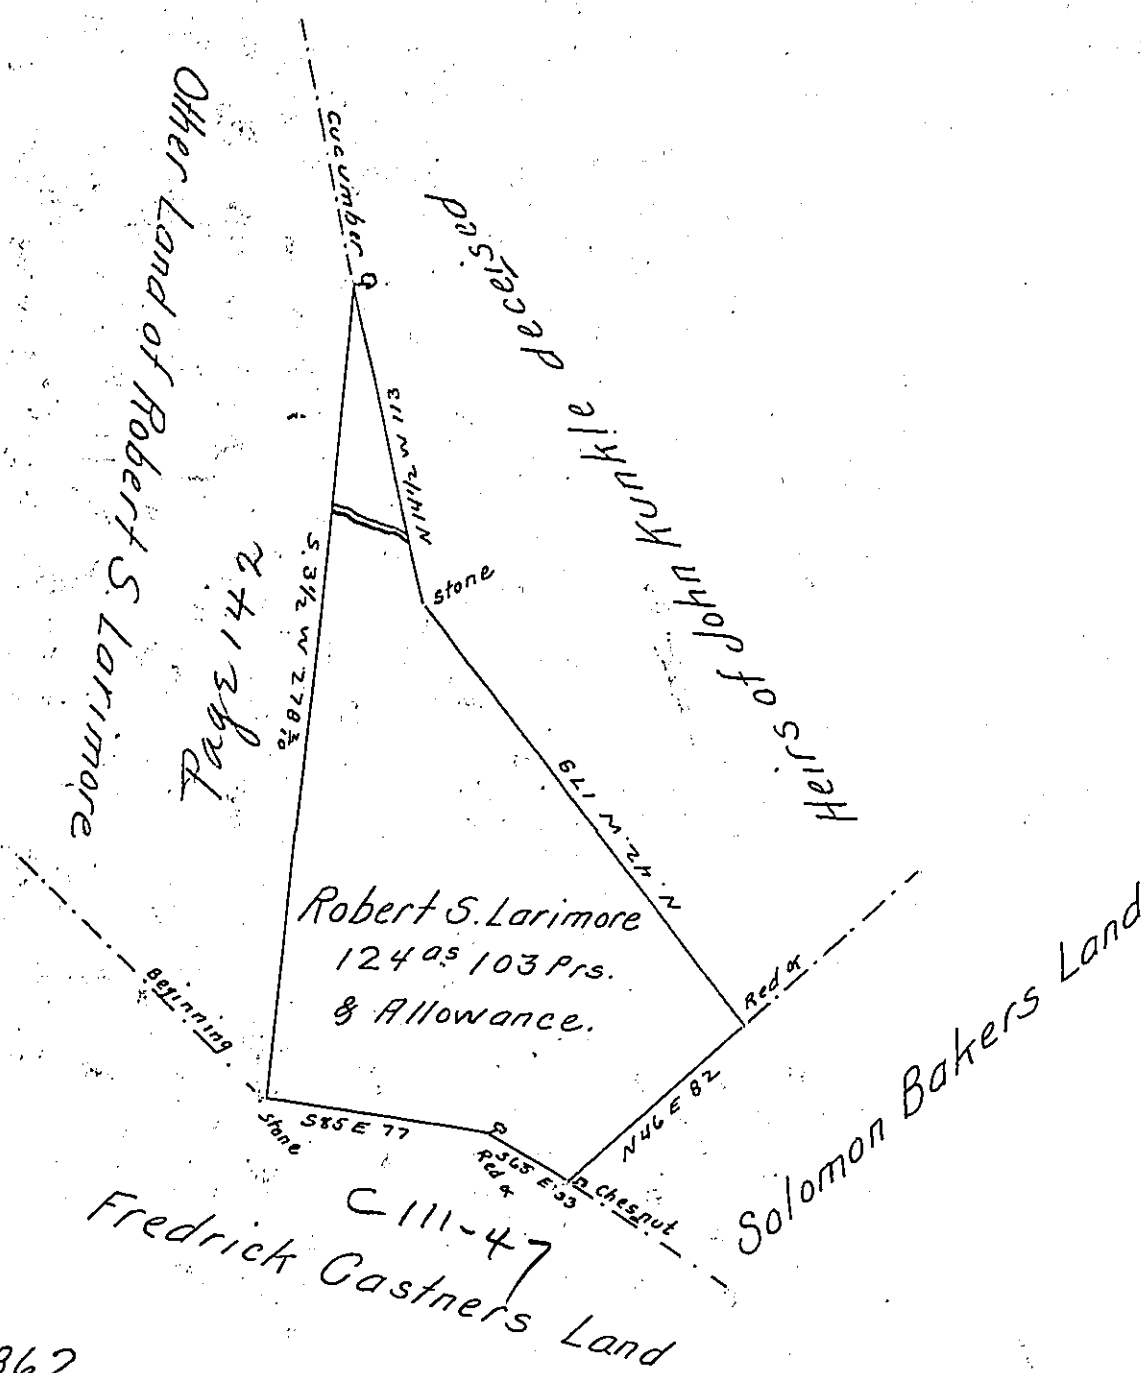 Other Land of Robert S. Larimore
Page 142
Cucumber
Heirs of John Kunkle deceised
N 14 1/2 W 113
stone
S. 3 1/2 W 278 3/10
N. 42. W 179
Robert S. Larimore
124 as 103 Prs.
& Allowance.
Beginning
stone
S85E 77
Red o
S65 E 33
Chesnut
N46 E 82
Red o
Solomon Bakers Land
C 111-47
Fredrick Castners Land